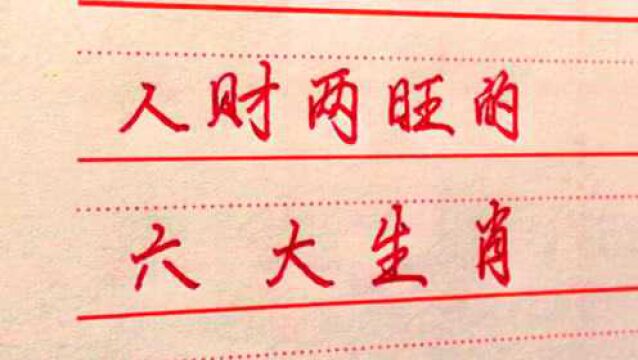 人财两旺的
六大生肖